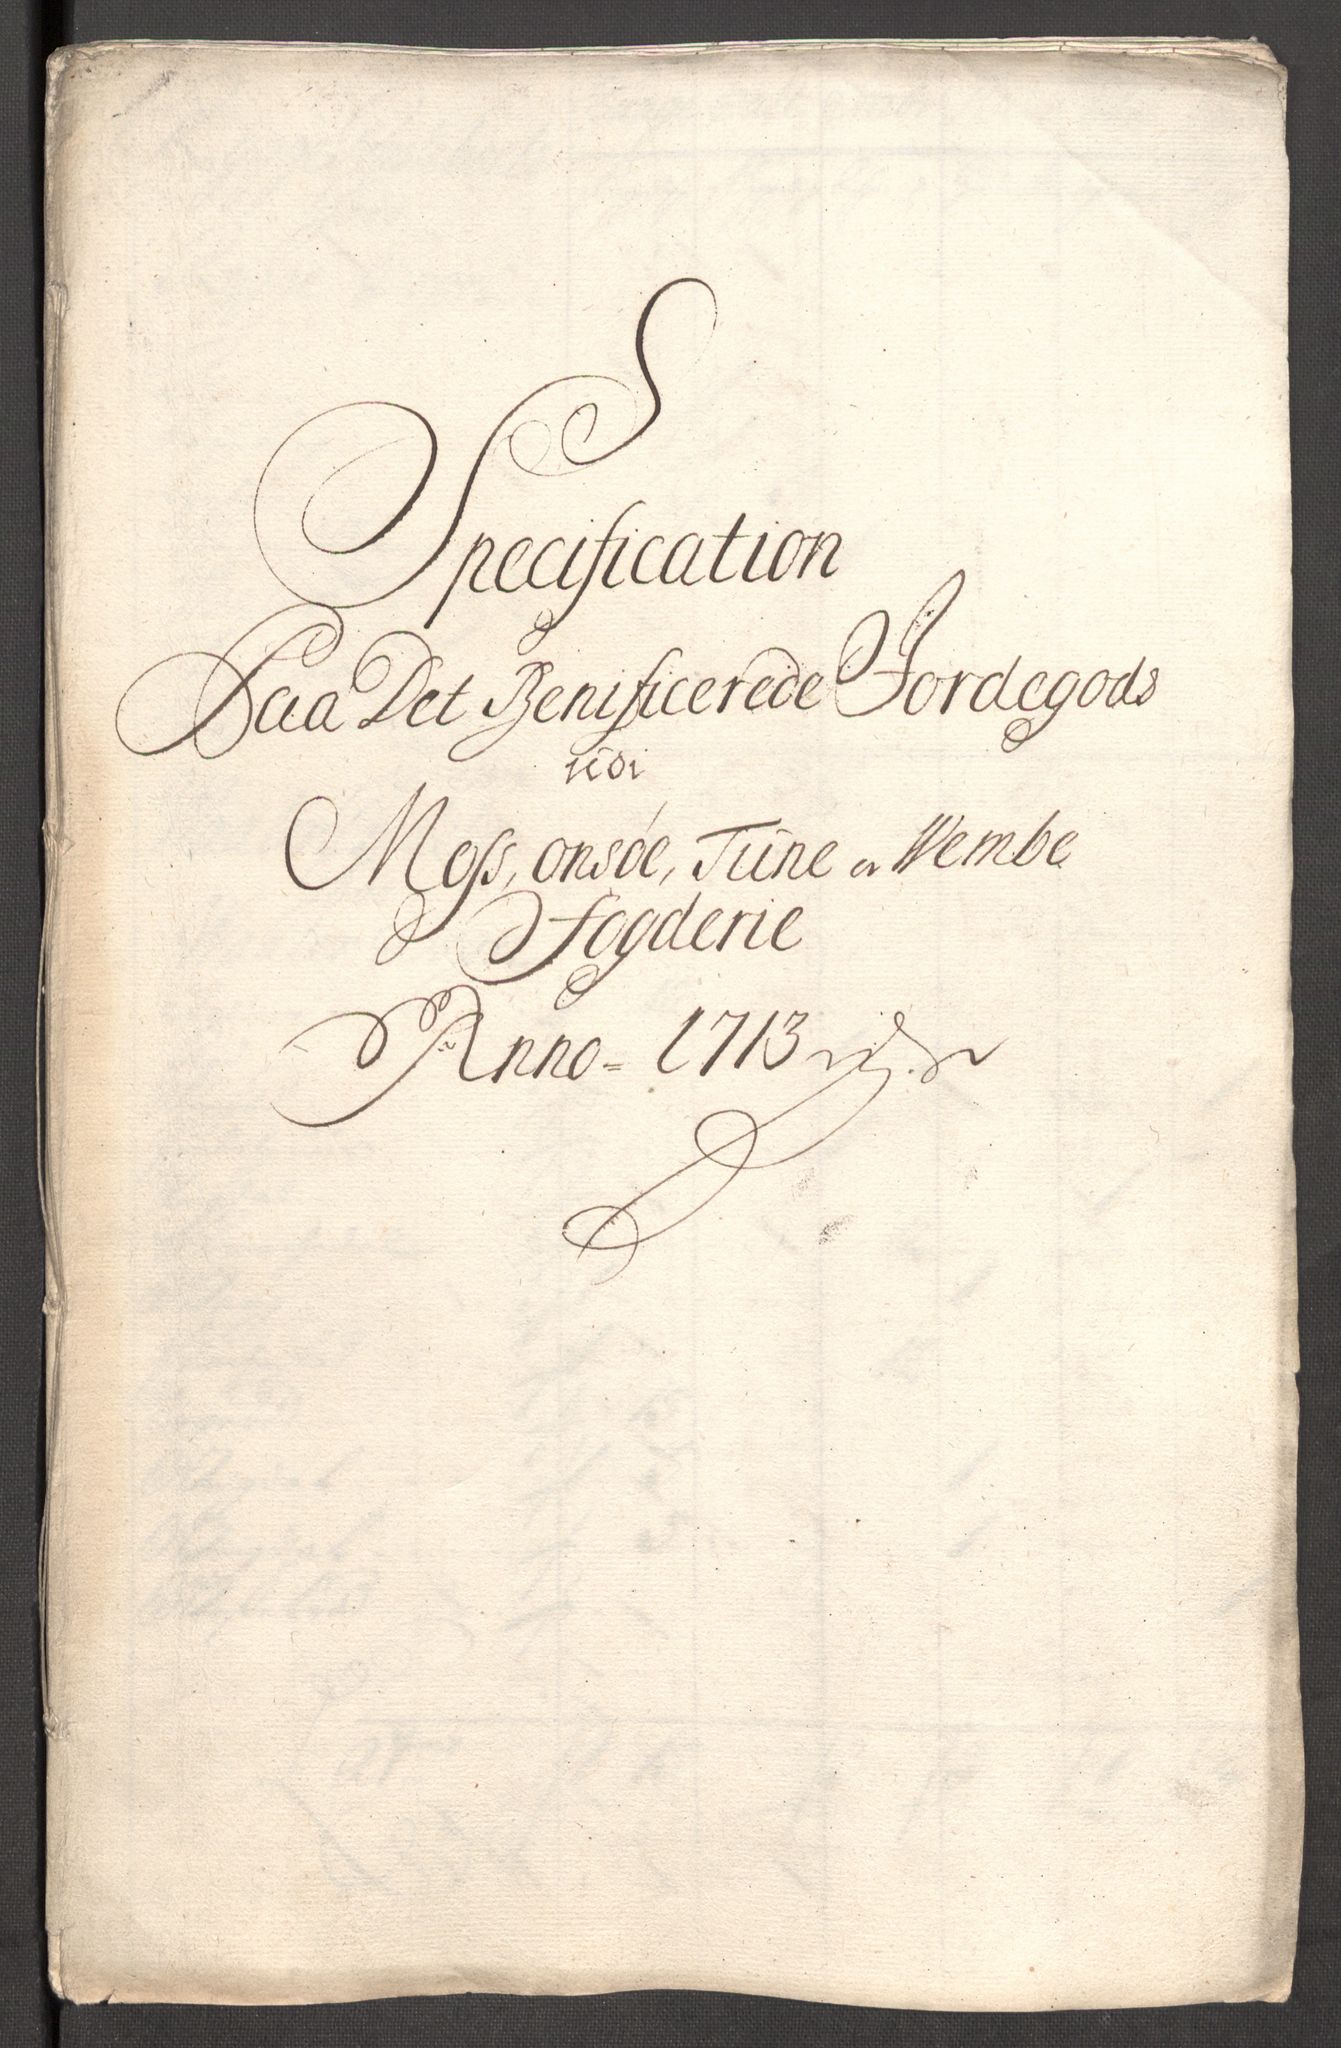 Specification
Paa Det Benificerede Jordegods
udi
Moss, onsöe, Tune oc Wembe
Fogderie
Anno = 1713